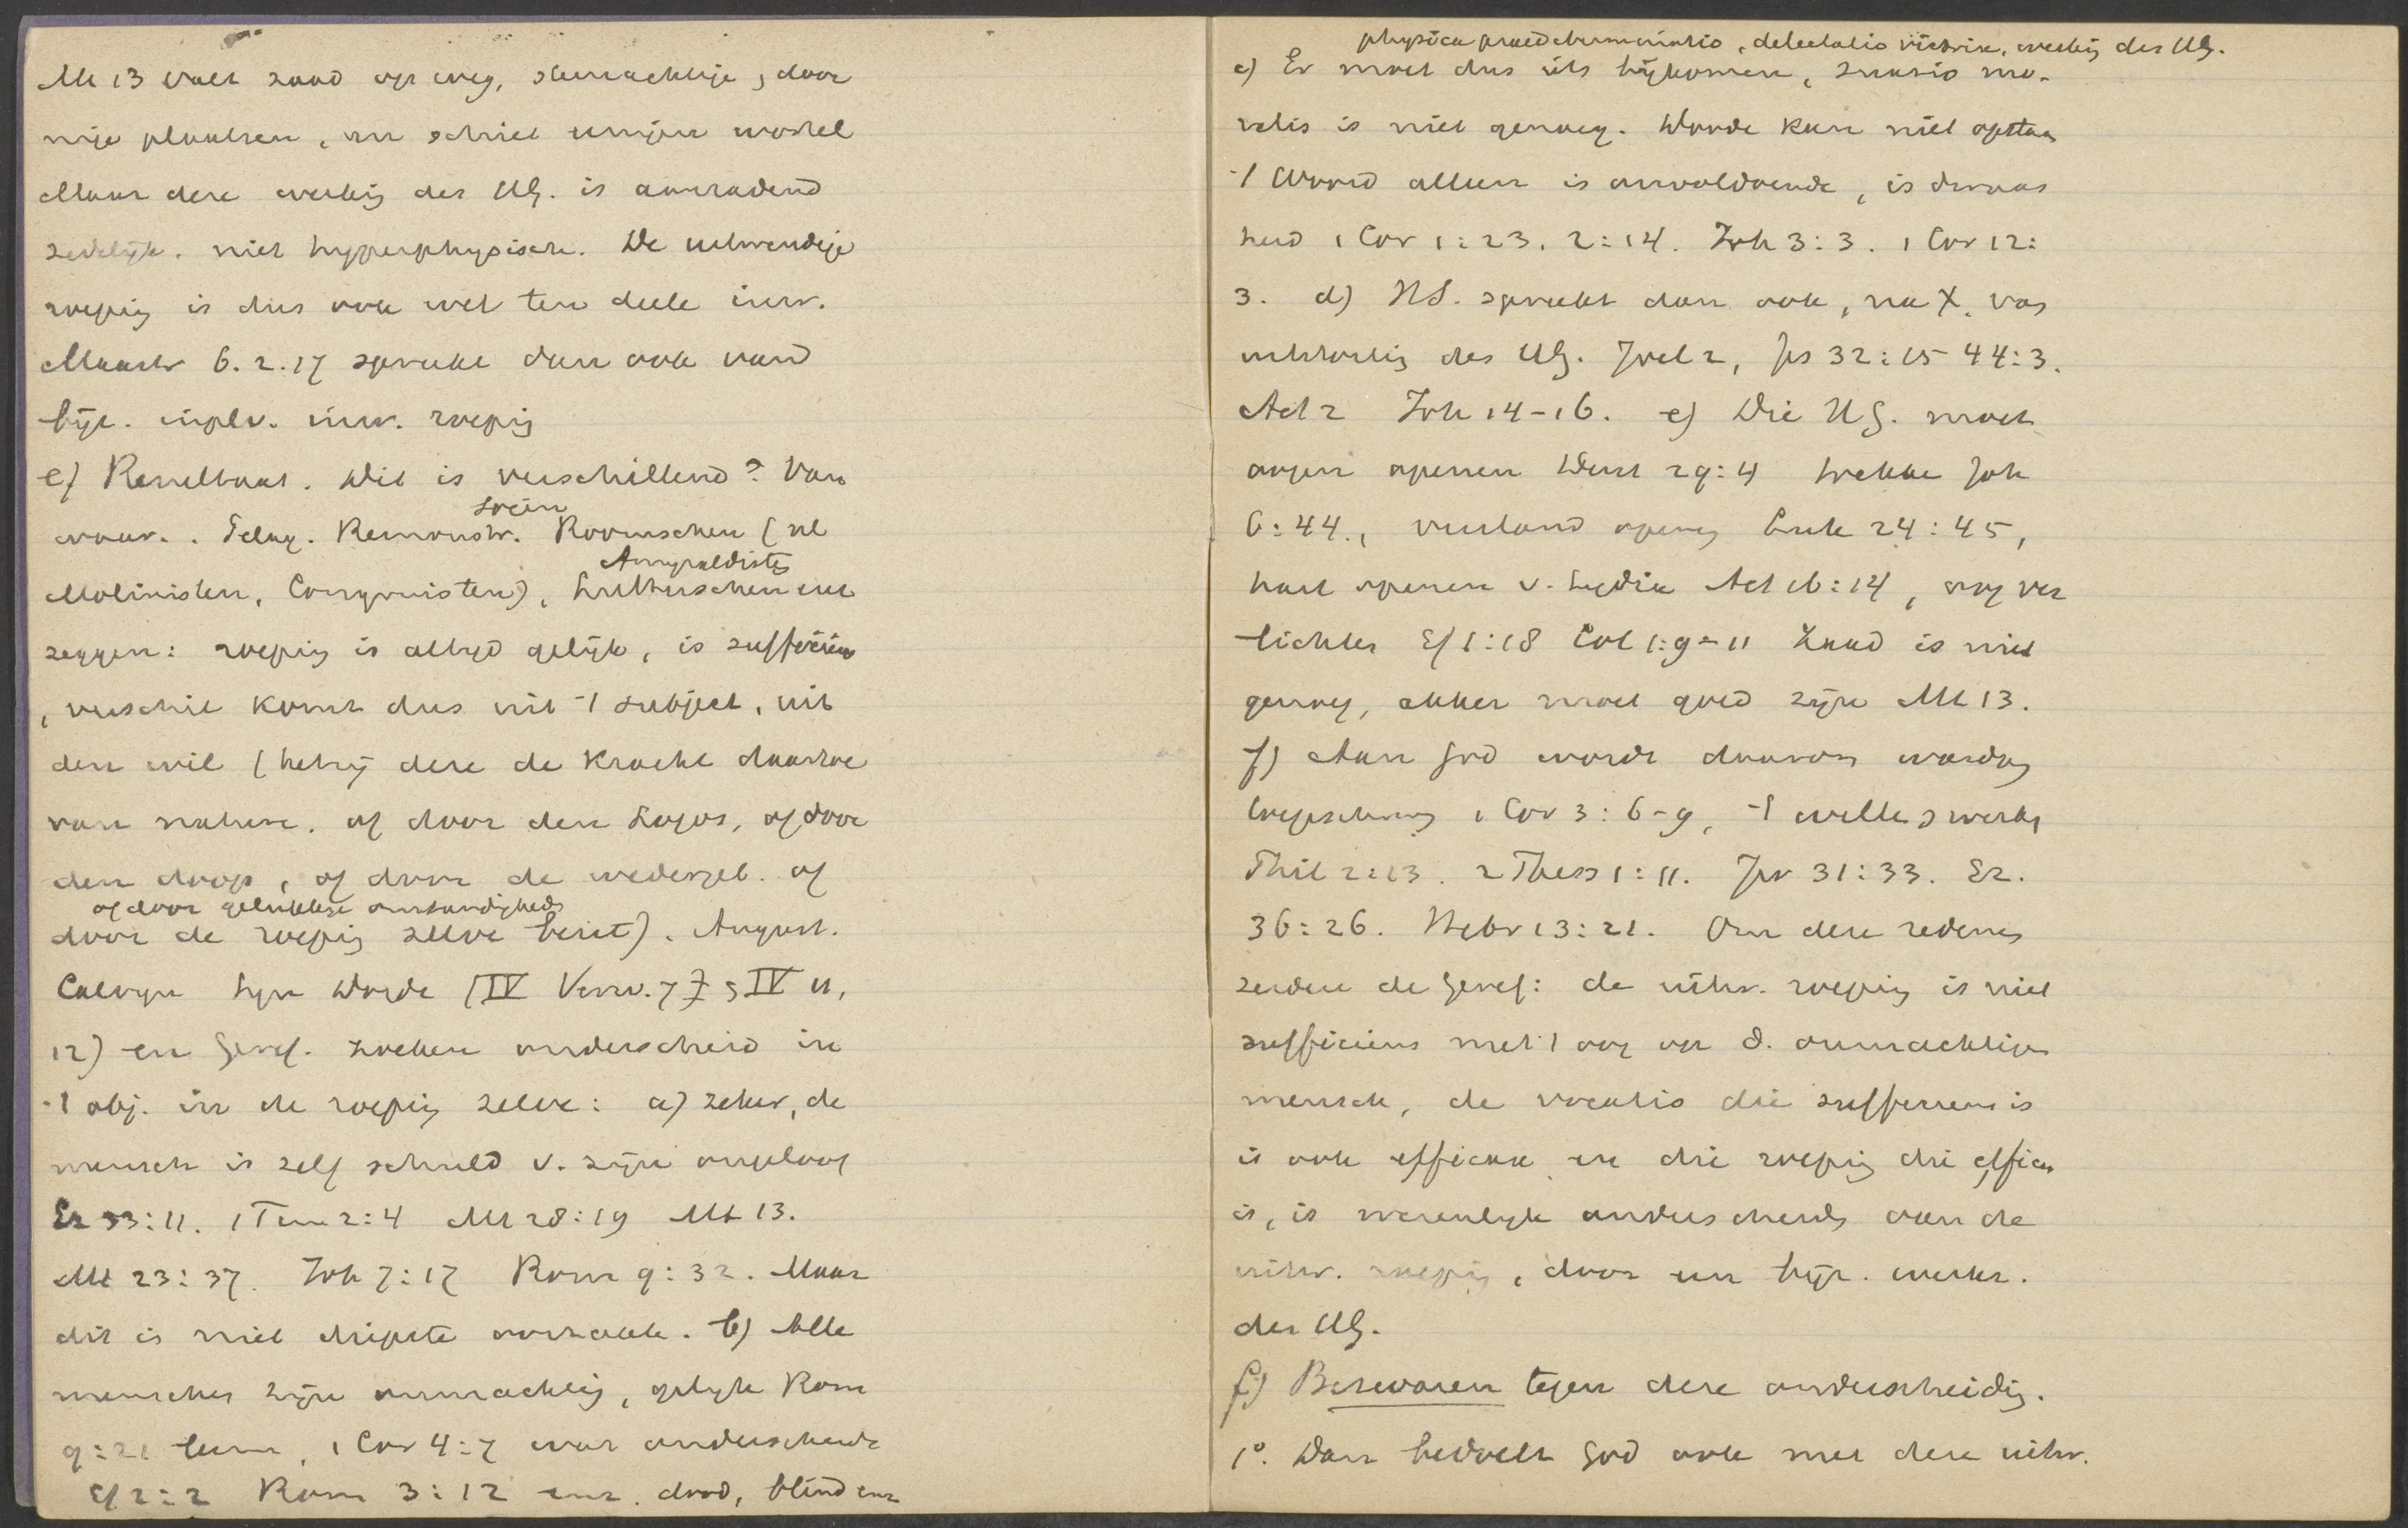 Mt 13 valt zaad op weg, steenachtige, door
nige plaatsen, en schiet eenigen wortel
Maar deze werkig des HG. is aanradend
zedelijk. niet hyperphysisch. De uitwendige
roepig is dus ook wel ten deele inw.
Mastr 6.2.17 spreekt dan ook van
bijz. inw. roepig
e) Resultaat. Dit is verschillend? Van
waar. . Pelag. Remonstr. Roomschen (nl
Socin
Molinisten, Congruisten), Lutherschen enz
Amyraldisten
zeggen: roepig is altijd gelijk, is sufficiens
, verschil komt dus uit 't subject, uit
den wil (hetzij deze de kracht daartoe
van nature, of door den Logos, of door
den doop, of door de wedergeb. of
of door gelukkige omstandigheden
door de roepig zelve bezit). August.
Calvijn Syn Dordr (IV Verw. 7 3 IV 11,
12) en Geref. zoeken onderscheid in
't obj. in de roepig zelve: a) zeker, de
mensch is zelf schuld v. zijn ongeloof
Ez 33:11. 1 Tim 2:4 Mt 28:19 Mt 13.
Mt 23:37. Joh 7:17 Rom 9:32. Maar
dit is niet diepste oorzaak. b) Alle
menschen zijn onmachtig, gelijk Rom
9:21 leem, 1 Cor 4:7 wat onderscheidt
Ef 2:2 Rom 3:12 enz. dood, blind enz
physica praedeterminatio, delectatio victrix, werkig des HG.
c) Er moet dus iets bijkomen, suasio mo-
ralis is niet genoeg. Doode kan niet opstaan
't Woord alleen is onvoldoende, is dwaas
heid 1 Cor 1:23. 2:14. Joh 3:3. 1 Cor 12:
3. d) HS. spreekt dan ook, na X, van
uitstortig des HG. Joel 2, Jes 32:15 44:3.
Act 2 Joh 14-16. e) Die HG. moet
oogen openen Deut 29:4 trekken Joh
6:44., verstand openen Luk 24:45,
hart openen v. Lydia Act 16:14, oog ver
lichten Ef 1:18 Col 1:9-11 Zaad is niet
genoeg, akker moet goed zijn Mt 13.
f) Aan God wordt daarom wasdom
toegeschreven 1 Cor 3:6-9, 't willen & werken
Phil 2:13. 2 Thess 1:11. Jer 31:33. Ez.
36:26. Hebr 13:21. Om deze redenen
zeiden de Geref: de uitw. roepig is niet
sufficiens met 't oog op d. onmachtigen
mensch, de vocatio die sufficiens is
is ook efficax en die roepig die efficax
is, is wezenlijk onderscheiden van de
uitw. roepig, door een bijz. werkz.
des HG.
f) Bezwaren tegen deze onderscheidig.
1°. Dan bedoelt God ook met deze uitw.